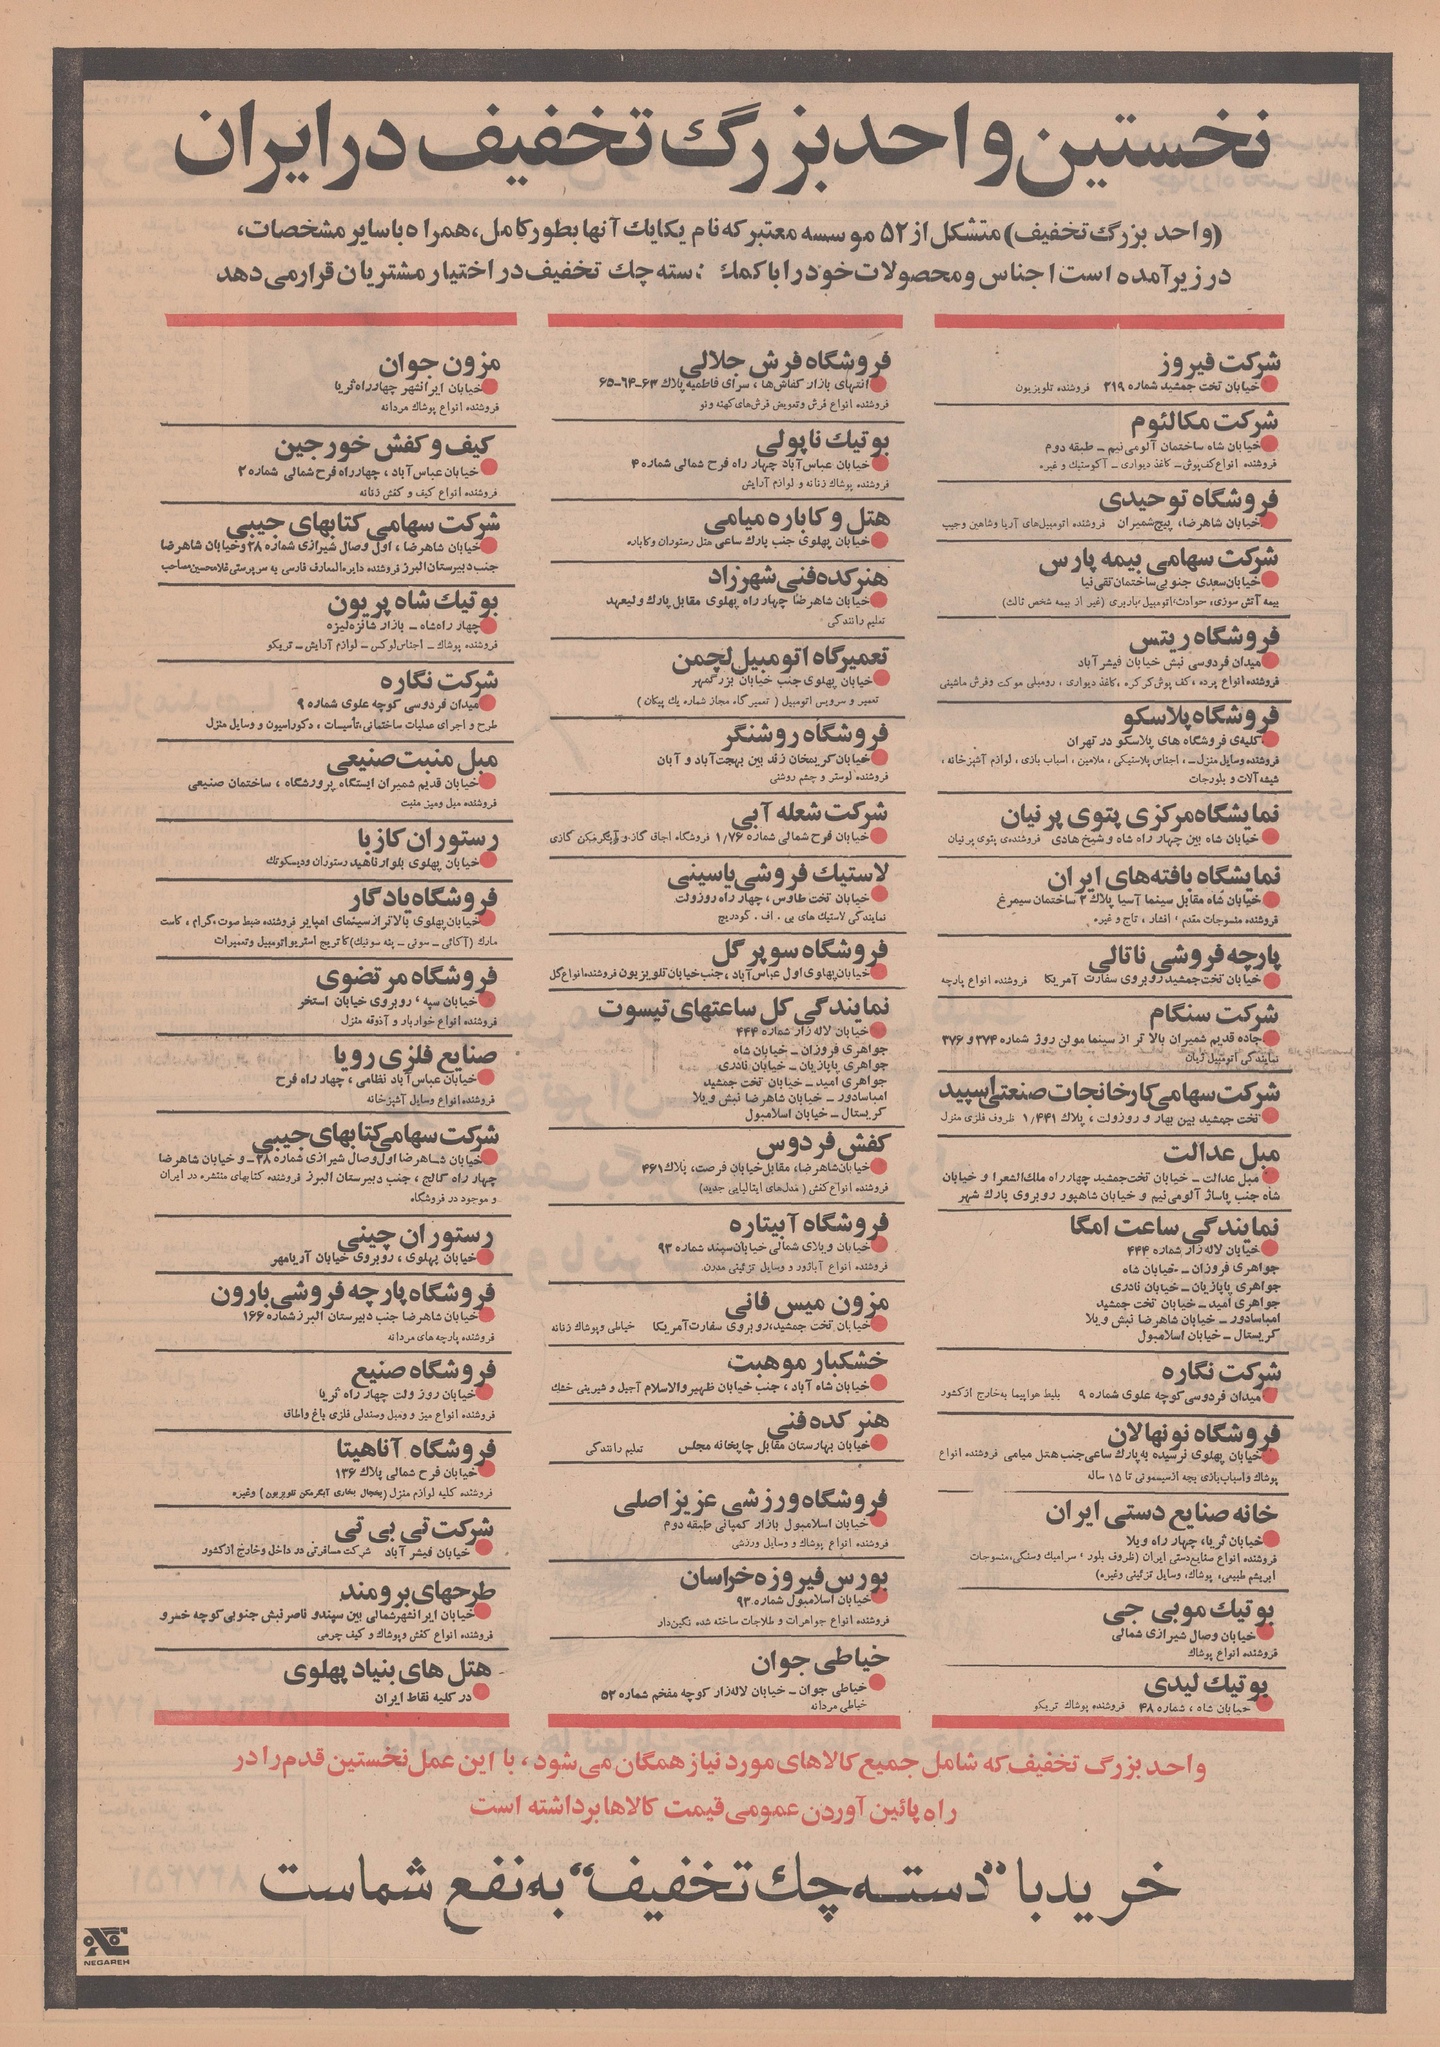 نخستین واحد بزرگ تخفیف در ایران
(واحد بزرگ تخفیف) متشکل از ۵۲ موسسه معتبر که نام یکایك آنها بطور کامل، همراه با سایر مشخصات،
در زیر آمده است اجناس و محصولات خود را با کمك دسته چك تخفیف در اختیار مشتریان قرار می دهد
شرکت فیروز
خیابان تخت جمشید شماره ۲۱۹ فروشنده تلویزیون
شرکت مکالئوم
خیابان شاه ساختمان آلومی نیم ــ طبقه دوم
فروشنده انواع کف پوش ــ کاغذ دیواری ــ آکوستیك و غیره
فروشگاه توحیدی
خیابان شاهرضا، پیچ شمیران فروشنده اتومبیل های آریا و شاهین و جیپ
شرکت سهامی بیمه پارس
خیابان سعدی جنوبی ساختمان تقی نیا
بیمه آتش سوزی، حوادث، اتومبیل، باربری (غیر از بیمه شخص ثالث)
فروشگاه ریتس
میدان فردوسی نبش خیابان فیشرآباد
فروشنده انواع پرده، کف پوش کرکره، کاغذ دیواری، رومبلی موکت وفرش ماشینی
فروشگاه پلاسکو
کلیه‌ی فروشگاه های پلاسکو در تهران
فروشنده وسایل منزل ــ، اجناس پلاستیکی، ملامین، اسباب بازی، لوازم آشپزخانه،
شیشه آلات و بلورجات
نمایشگاه مرکزی پتوی پرنیان
خیابان شاه بین چهار راه شاه و شیخ هادی فروشنده‌ی پتوی پرنیان
نمایشگاه بافته های ایران
خیابان شاه مقابل سینما آسیا پلاك ۲ ساختمان سیمرغ
فروشنده منسوجات مقدم، افشار، تاج و غیره
پارچه فروشی ناتالی
خیابان تخت جمشید روبروی سفارت آمریکا فروشنده انواع پارچه
شرکت سنگام
جاده قدیم شمیران بالاتر از سینما مولن روژ شماره ۳۷۴ و ۳۷۶
نمایندگی اتومبیل ژیان
شرکت سهامی کارخانجات صنعتی اسپید
تخت جمشید بین بهار و روزولت، پلاك ۱٫۴۴۱ ظروف فلزی منزل
مبل عدالت
مبل عدالت ــ خیابان تخت جمشید چهارراه ملك الشعرا و خیابان
شاه جنب پاساژ آلومی نیم و خیابان شاهپور روبروی پارك شهر
نمایندگی ساعت امگا
خیابان لاله زار شماره ۴۴۴
جواهری فروزان ــ خیابان شاه
جواهری پاپازیان ــ خیابان نادری
جواهری امید ــ خیابان تخت جمشید
امباسادور ــ خیابان شاهرضا نبش ویلا
کریستال ــ خیابان اسلامبول
شرکت نگاره
میدان فردوسی کوچه علوی شماره ۹ بلیط هواپیما به خارج از کشور
فروشگاه نونهالان
خیابان پهلوی نرسیده به پارك ساعی جنب هتل میامی فروشنده انواع
پوشاك واسباب بازی بچه از سیسمونی تا ۱۵ ساله
خانه صنایع دستی ایران
خیابان ثریا، چهار راه ویلا
فروشنده انواع صنایع دستی ایران (ظروف بلور، سرامیك وسنگی، منسوجات
ابریشم طبیعی، پوشاك، وسایل تزئینی و غیره)
بوتیك موبی جی
خیابان وصال شیرازی شمالی
فروشنده انواع پوشاك
بوتیك لیدی
خیابان شاه، شماره ۴۸ فروشنده پوشاك تریکو
فروشگاه فرش جلالی
انتهای بازار کفاش ها، سرای فاطمیه پلاك ۶۳ــ۶۴ــ۶۵
فروشنده انواع فرش وتعویض فرش های کهنه ونو
بوتیك ناپولی
خیابان عباس آباد چهار راه فرح شمالی شماره ۴
فروشنده پوشاك زنانه و لوازم آرایش
هتل و کاباره میامی
خیابان پهلوی جنب پارك ساعی هتل رستوران وکاباره
هنرکده فنی شهرزاد
خیابان شاهرضا چهار راه پهلوی مقابل پارك ولیعهد
تعلیم رانندگی
تعمیرگاه اتومبیل لچمن
خیابان پهلوی جنب خیابان بزرگمهر
تعمیر و سرویس اتومبیل (تعمیرگاه مجاز شماره یك پیکان)
فروشگاه روشنگر
خیابان کریمخان زند بین بهجت آباد و آبان
فروشنده لوستر و چشم روشنی
شرکت شعله آبی
خیابان فرح شمالی شماره ۱٫۷۶ فروشگاه اجاق گاز و آبگرمکن گازی
لاستیك فروشی یاسینی
خیابان تخت طاوس، چهار راه روزولت
نمایندگی لاستیك های بی. اف. گودریچ
فروشگاه سوپر گل
خیابان پهلوی اول عباس آباد، جنب خیابان تلویزیون فروشنده انواع گل
نمایندگی کل ساعتهای تیسوت
خیابان لاله زار شماره ۴۴۴
جواهری فروزان ــ خیابان شاه
جواهری پاپازیان ــ خیابان نادری
جواهری امید ــ خیابان تخت جمشید
امباسادور ــ خیابان شاهرضا نبش ویلا
کریستال ــ خیابان اسلامبول
کفش فردوس
خیابان شاهرضا، مقابل خیابان فرصت، پلاك ۴۶۱
فروشنده انواع کفش (مدل های ایتالیایی جدید)
فروشگاه آبیتاره
خیابان ویلای شمالی خیابان سپند شماره ۹۳
فروشنده انواع آباژور و وسایل تزئینی مدرن
مزون میس فانی
خیابان تخت جمشید، روبروی سفارت آمریکا خیاطی وپوشاك زنانه
خشکبار موهبت
خیابان شاه آباد، جنب خیابان ظهیر والاسلام آجیل و شیرینی خشك
هنرکده فنی
خیابان بهارستان مقابل چاپخانه مجلس تعلیم رانندگی
فروشگاه ورزشی عزیز اصلی
خیابان اسلامبول بازار کمپانی طبقه دوم
فروشنده انواع پوشاك و وسایل ورزشی
بورس فیروزه خراسان
خیابان اسلامبول شماره ۹۳
فروشنده انواع جواهرات و طلاجات ساخته شده نگین دار
خیاطی جوان
خیاطی جوان ــ خیابان لاله زار کوچه مفخم شماره ۵۲
خیاطی مردانه
مزون جوان
خیابان ایرانشهر چهارراه ثریا
فروشنده انواع پوشاك مردانه
کیف و کفش خورجین
خیابان عباس آباد، چهارراه فرح شمالی شماره ۲
فروشنده انواع کیف و کفش زنانه
شرکت سهامی کتابهای جیبی
خیابان شاهرضا، اول وصال شیرازی شماره ۲۸ وخیابان شاهرضا
جنب دبیرستان البرز فروشنده دایره المعارف فارسی به سرپرستی غلامحسین مصاحب
بوتیك شاه پریون
چهار راه شاه ــ بازار شانزه لیزه
فروشنده پوشاك ــ اجناس لوکس ــ لوازم آرایش ــ تریکو
شرکت نگاره
میدان فردوسی کوچه علوی شماره ۹
طرح و اجرای عملیات ساختمانی، تأسیسات، دکوراسیون و وسایل منزل
مبل منبت صنیعی
خیابان قدیم شمیران ایستگاه پرورشگاه، ساختمان صنیعی
فروشنده مبل ومیز منبت
رستوران کازبا
خیابان پهلوی بلوار ناهید رستوران ودیسکوتك
فروشگاه یادگار
خیابان پهلوی بالاتر از سینمای امپایر فروشنده ضبط صوت، گرام، کاست
مارك (آکائی ــ سونی ــ پنه سونیك) کاتریج استریو اتومبیل وتعمیرات
فروشگاه مرتضوی
خیابان سپه، روبروی خیابان استخر
فروشنده انواع خواربار و آذوقه منزل
صنایع فلزی رویا
خیابان عباس آباد نظامی، چهار راه فرح
فروشنده انواع وسایل آشپزخانه
شرکت سهامی کتابهای جیبی
خیابان شاهرضا اول وصال شیرازی شماره ۲۸ ــ و خیابان شاهرضا
چهار راه کالج، جنب دبیرستان البرز فروشنده کتابهای منتشره در ایران
و موجود در فروشگاه
رستوران چینی
خیابان پهلوی، روبروی خیابان آریامهر
فروشگاه پارچه فروشی بارون
خیابان شاهرضا جنب دبیرستان البرز شماره ۱۶۶
فروشنده پارچه های مردانه
فروشگاه صنیع
خیابان روزولت چهار راه ثریا
فروشنده انواع میز و ومبل وصندلی فلزی باغ واطاق
فروشگاه آناهیتا
خیابان فرح شمالی پلاك ۱۳۶
فروشنده کلیه لوازم منزل (یخچال بخاری آبگرمکن تلویزیون) وغیره
شرکت تی بی تی
خیابان فیشرآباد شرکت مسافرتی در داخل وخارج از کشور
طرحهای برومند
خیابان ایرانشهر شمالی بین سپند و ناصر نبش جنوبی کوچه خسرو
فروشنده انواع کفش وپوشاك و کیف چرمی
هتل های بنیاد پهلوی
در کلیه نقاط ایران
واحد بزرگ تخفیف که شامل جمیع کالاهای مورد نیاز همگان می شود، با این عمل نخستین قدم را در
راه پائین آوردن عمومی قیمت کالاها برداشته است
خرید با “دسته چك تخفیف” به نفع شماست
نگاره
NEGAREH